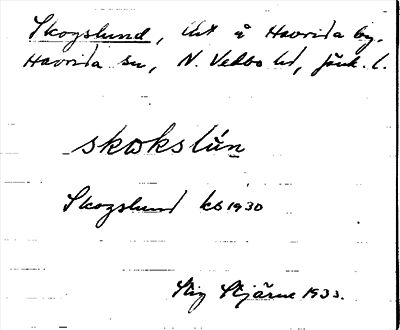 Skogslund, lht å Havrida by,
Havrida sn, N. Vedbo hd, Jönk. l.
skωkslún
Skogslund kb 1930
Stig Stjärne 1933.